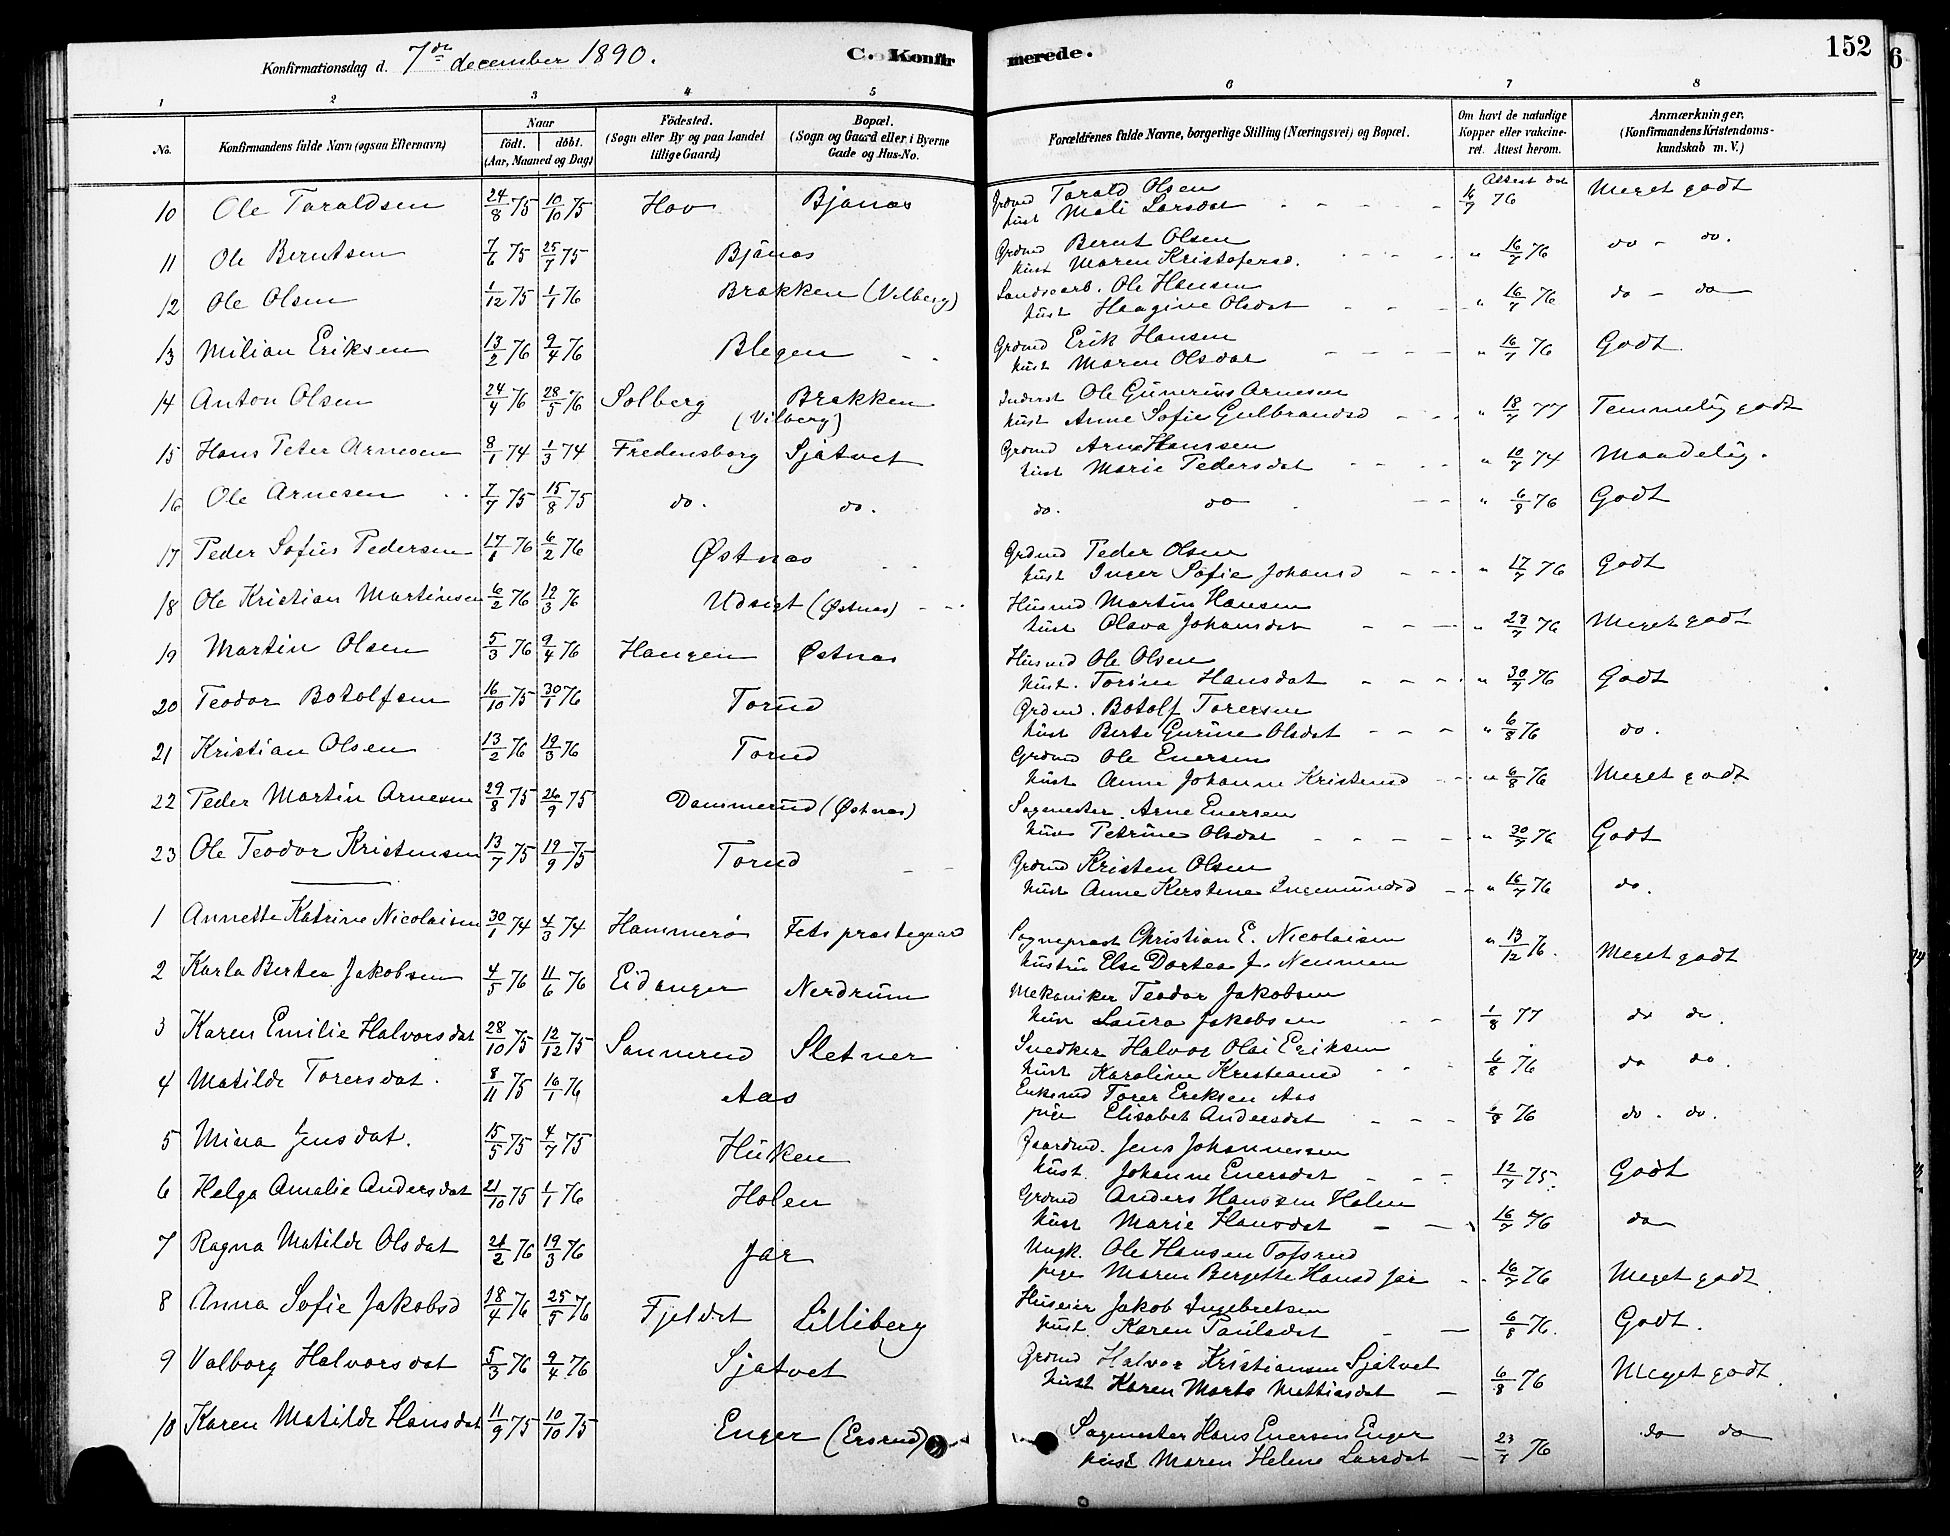 Konfirmationsdag d. 7de december 1890. C. Konfirmerede. 152
1 2 3 4 5 6 7 8
No. Konfirmandens fulde Navn (ogsaa Efternavn) Naar født. døbt. (Aar, Maaned og Dag) Fødested. (Sogn eller By og paa Landet tillige Gaard) Bopæl. (Sogn og Gaard eller i Byerne Gade og Hus-No. Forældrenes fulde Navne, borgerlige Stilling (Næringsvei) og Bopæl. Om havt de naturlige Kopper eller vakcineret. Attest herom. Anmærkninger. (Konfirmandens Kristendomskundskab m. V.)
10 Ole Taraldsen 24/8 75 10/10 75 Hov Bjanas Grdmd Tarald Olsen Attest dat 16/7 76 Meget godt
hust Mali Larsdat
11 Ole Berntsen 7/6 75 25/7 75 Bjänas Grdmd Bernt Olsen " 16/7 76 do - do.
hust Maren Kristofersd.
12 Ole Olsen 1/12 75 1/1 76 Brakken (Vilberg) Landsoarb. Ole Hansen " 16/7 76 do - do
hust Haagine Olsdat
13 Milian Eriksen 13/2 76 9/4 76 Blegen Grdmd Erik Hansen " 16/7 76 Godt
hust Maren Olsdat
14 Anton Olsen 24/4 76 28/5 76 Solberg Brakken (Vilberg) Inderst Ole Gunerius Arnesen " 18/7 77 Temmelig godt
hust Anne Sofie Gulbrandsd
15 Hans Peter Arnesen 8/1 74 1/3 74 Fredensborg Sjatvet Grdmd Arne Hanssen " 10/7 74 Maadelig.
hust Marie Pedersdat
16 Ole Arnesen 7/7 75 15/8 75 do. do. do. do " 6/8 76 Godt
17 Peder Sofus Pedersen 17/1 76 6/2 76 Østnas Grdmd Peder Olsen " 17/7 76 Godt
hust Inger Sofie Johansd
18 Ole Kristian Martinsen 6/2 76 12/3 76 Udsigt (Østnas) Husmd Martin Hansen " 23/7 76 Meget godt
hust Olava Johansdat
19 Martin Olsen 5/3 76 9/4 76 Haugen Østnas Husmd Ole Olsen " 30/7 76 Godt
hust. Torine Hansdat
20 Teodor Botolfsen 16/10 75 30/1 76 Torud Grdmd. Botolf Torersen " 6/8 76 do.
hust Berte Gurine Olsdat
21 Kristian Olsen 13/2 76 19/3 76 Torud Grdmd Ole Enersen " 6/8 76 Meget godt
hust Anne Johanne Kristensd
22 Peder Martin Arnesen 29/8 75 26/9 75 Dammerud (Østnas) Sagmester Arne Enersen " 30/7 76 Godt
hust Petrine Olsdat
23 Ole Teodor Kristensen 13/7 75 19/9 75 Torud Grdmd Kristen Olsen " 16/7 76 do.
hust Anne Kerstine Ingemundsd
1 Annette Katrine Nicolaisen 30/1 74 4/3 74 Hammerø Fets prastegaard Sogneprast Christian E. Nicolaisen " 13/12 76. Meget godt
hustru Else Dortea J. Neuman
2 Karla Bertea Jakobsen 4/5 76 11/6 76 Eidanger Nerdrum Mekaniker Teodor Jakobsen 1/8 77 do do.
hust Laura Jakobsen
3 Karen Emilie Halvorsdat 28/10 75 12/12 75 Sannerud Sletner Snedker Halvor Olai Eriksen 6/8 76 do do.
hust Karoline Kristiansd
4 Matilde Torersdat. 8/11 75 16/1 76 Aas Enkemd Torer Eriksen Aas 6/8 76 do. do.
pige Elisabet Andersdat
5 Mina Jensdat. 15/5 75 4/7 75 Huken Gaardmd. Jens Johannessen 12/7 75. Godt
hust. Johanne Enersdat
6 Helga Amalie Andersdat 21/10 75 1/1 76 Holen Grdmd Anders Hanssen Holen 16/7 76 do
hust Marie Hansdat
7 Ragna Matilde Olsdat 21/2 76 19/3 76 Jar Ungk. Ole Hansen Tofsrud 16/7 76 Meget godt.
pige Maren Bergette Hansd Jar
8 Anna Sofie Jakobsd 18/4 76 25/5 76 Fjeldet Lilliberg Huseier Jakob Ingebretsen 6/8 76. Godt.
hust. Karen Paulsdat
9 Valborg Halvorsdat 5/3 76 9/4 76 Sjatvet Grdmd Halvor Kristiansen Sjatvet 6/8 76 Meget godt.
hust Karen Marte Mattiasdat
10 Karen Matilde Hansdat 11/9 75 10/10 75 Enger (Ersrud) Sagmester Hans Enersen Enger 23/7 76 do do
hust Maren Helene Larsdat